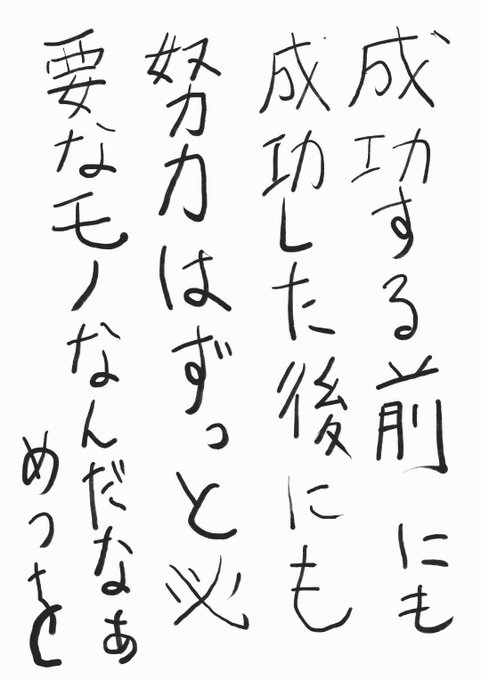 成功する前にも
成功した後にも
努力はずっと必
要なモノなんだなぁ
めっさと